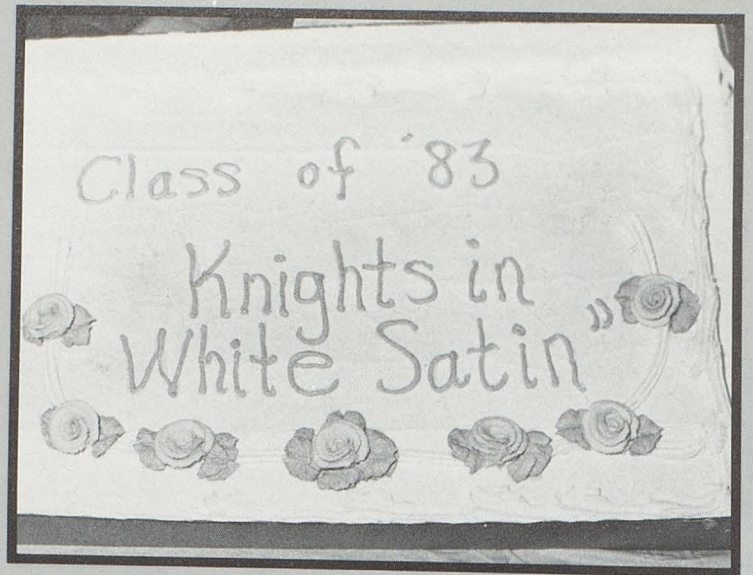 Class of '83
Knights in
White Satin"